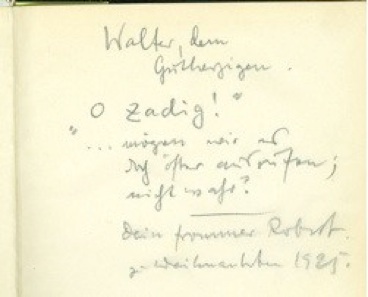 Walter, dem
Gutherzigen.
O Zadig!"
"... mögen wir es
doch öfter ausrufen;
nicht wahr?
Dein frommer Robert.
Weihnachten 1925.